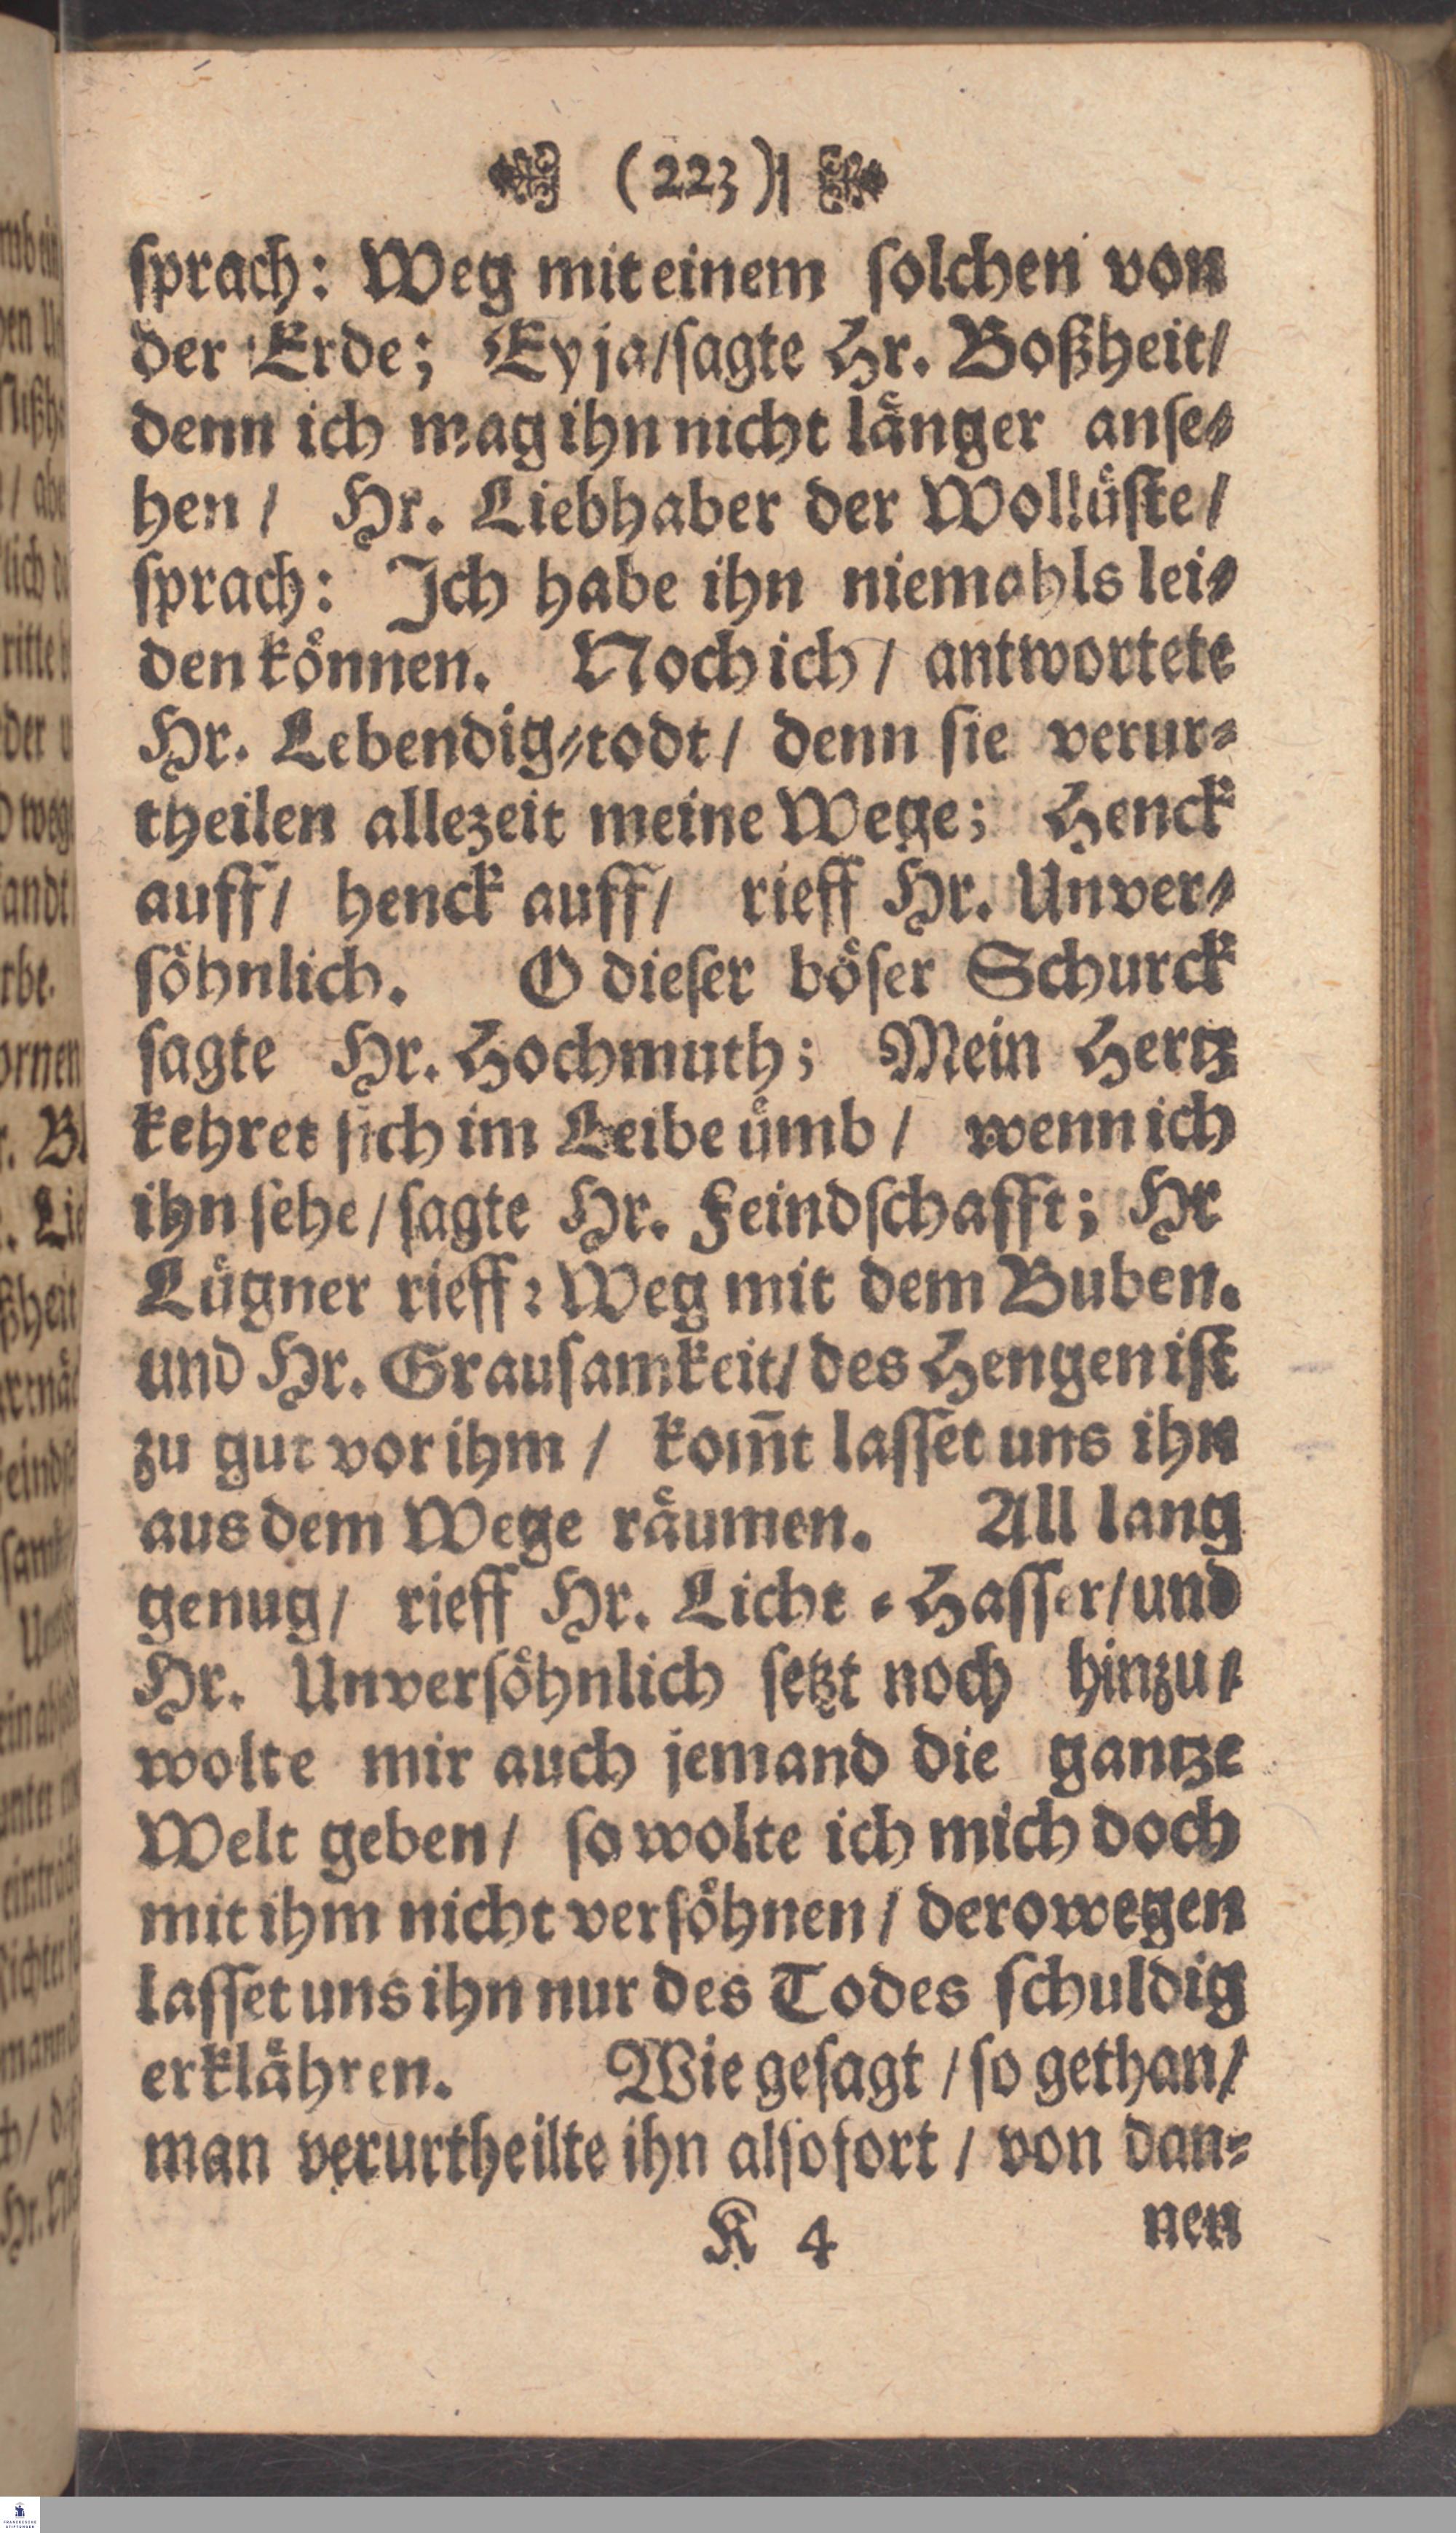 (223)
ſprach: Weg mit einem ſolchen von
der Erde; Ey ja/ ſagte Hr. Boßheit/
denn ich mag ihn nicht laͤnger anſe-
hen/ Hr. Liebhaber der Wolluͤſte/
ſprach: Ich habe ihn niemahls lei-
den koͤnnen. Noch ich/ antwortete
Hr. Lebendig-todt/ denn ſie verur-
theilen allezeit meine Wege; Henck
auff/ henck auff/ rieff Hr. Unver-
ſoͤhnlich. O dieſer boͤſer Schurck
ſagte Hr. Hochmuth; Mein Hertz
kehret ſich im Leibe uͤmb/ wenn ich
ihn ſehe/ ſagte Hr. Feindſchafft; Hr
Luͤgner rieff: Weg mit dem Buben.
und Hr. Grauſamkeit/ des Hengen iſt
zu gut vor ihm/ kom̃t laſſet uns ihn
aus dem Wege raͤumen. All lang
genug/ rieff Hr. Licht-Haſſer/ und
Hr. Unverſoͤhnlich ſetzt noch hinzu/
wolte mir auch jemand die gantze
Welt geben/ ſo wolte ich mich doch
mit ihm nicht verſoͤhnen/ derowegen
laſſet uns ihn nur des Todes ſchuldig
erklaͤhren. Wie geſagt/ ſo gethan/
man verurtheilte ihn alſofort/ von dan-
K 4 nen
FRANCKESCHE
STIFTUNGEN